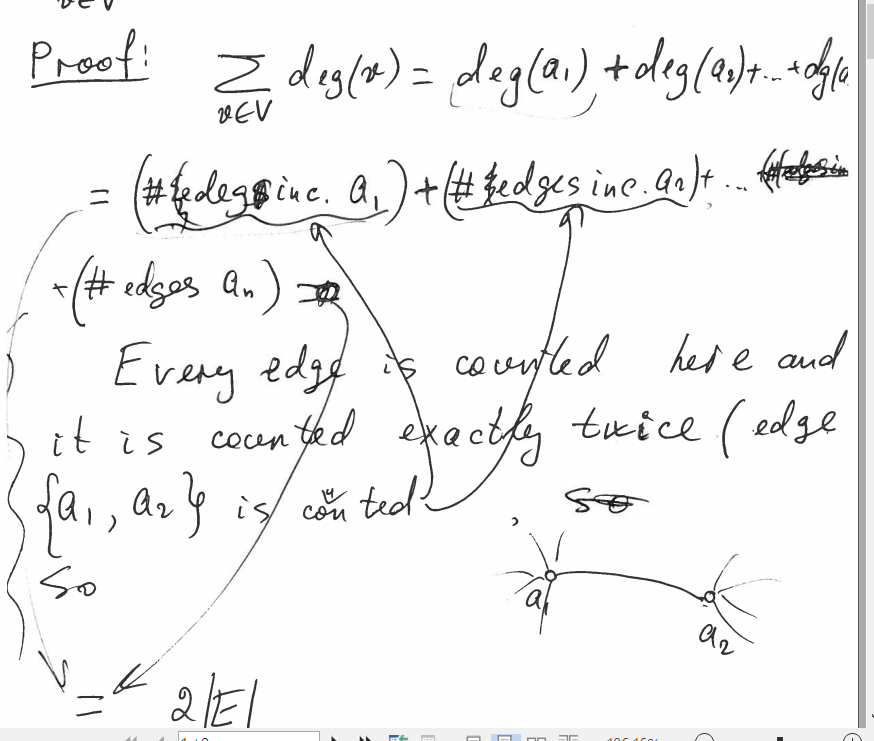 v∈V
Proof: ∑ v∈V deg(v) = deg(a₁) + deg(a₂) + ... + dg(a
= (#{edegs inc. a₁) + (#{edges inc. a₂) + ...
+ (# edges aₙ) =
Every edge is counted here and
it is counted exactly twice (edge
{a₁, a₂} is conted
,
so
a₁
a₂
= 2|E|